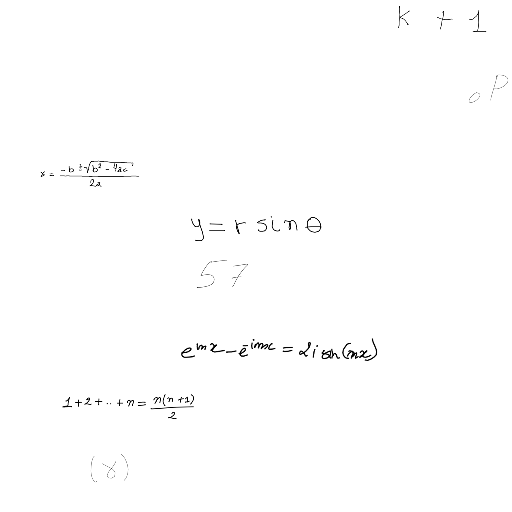 k + 1
₀P
x = \frac{-b ± \sqrt{b² - 4ac}}{2a}
y = r sin θ
57
e^{inx} - e^{-inx} = 2i sin(nx)
1 + 2 + .. + n = \frac{n(n+1)}{2}
(γ)